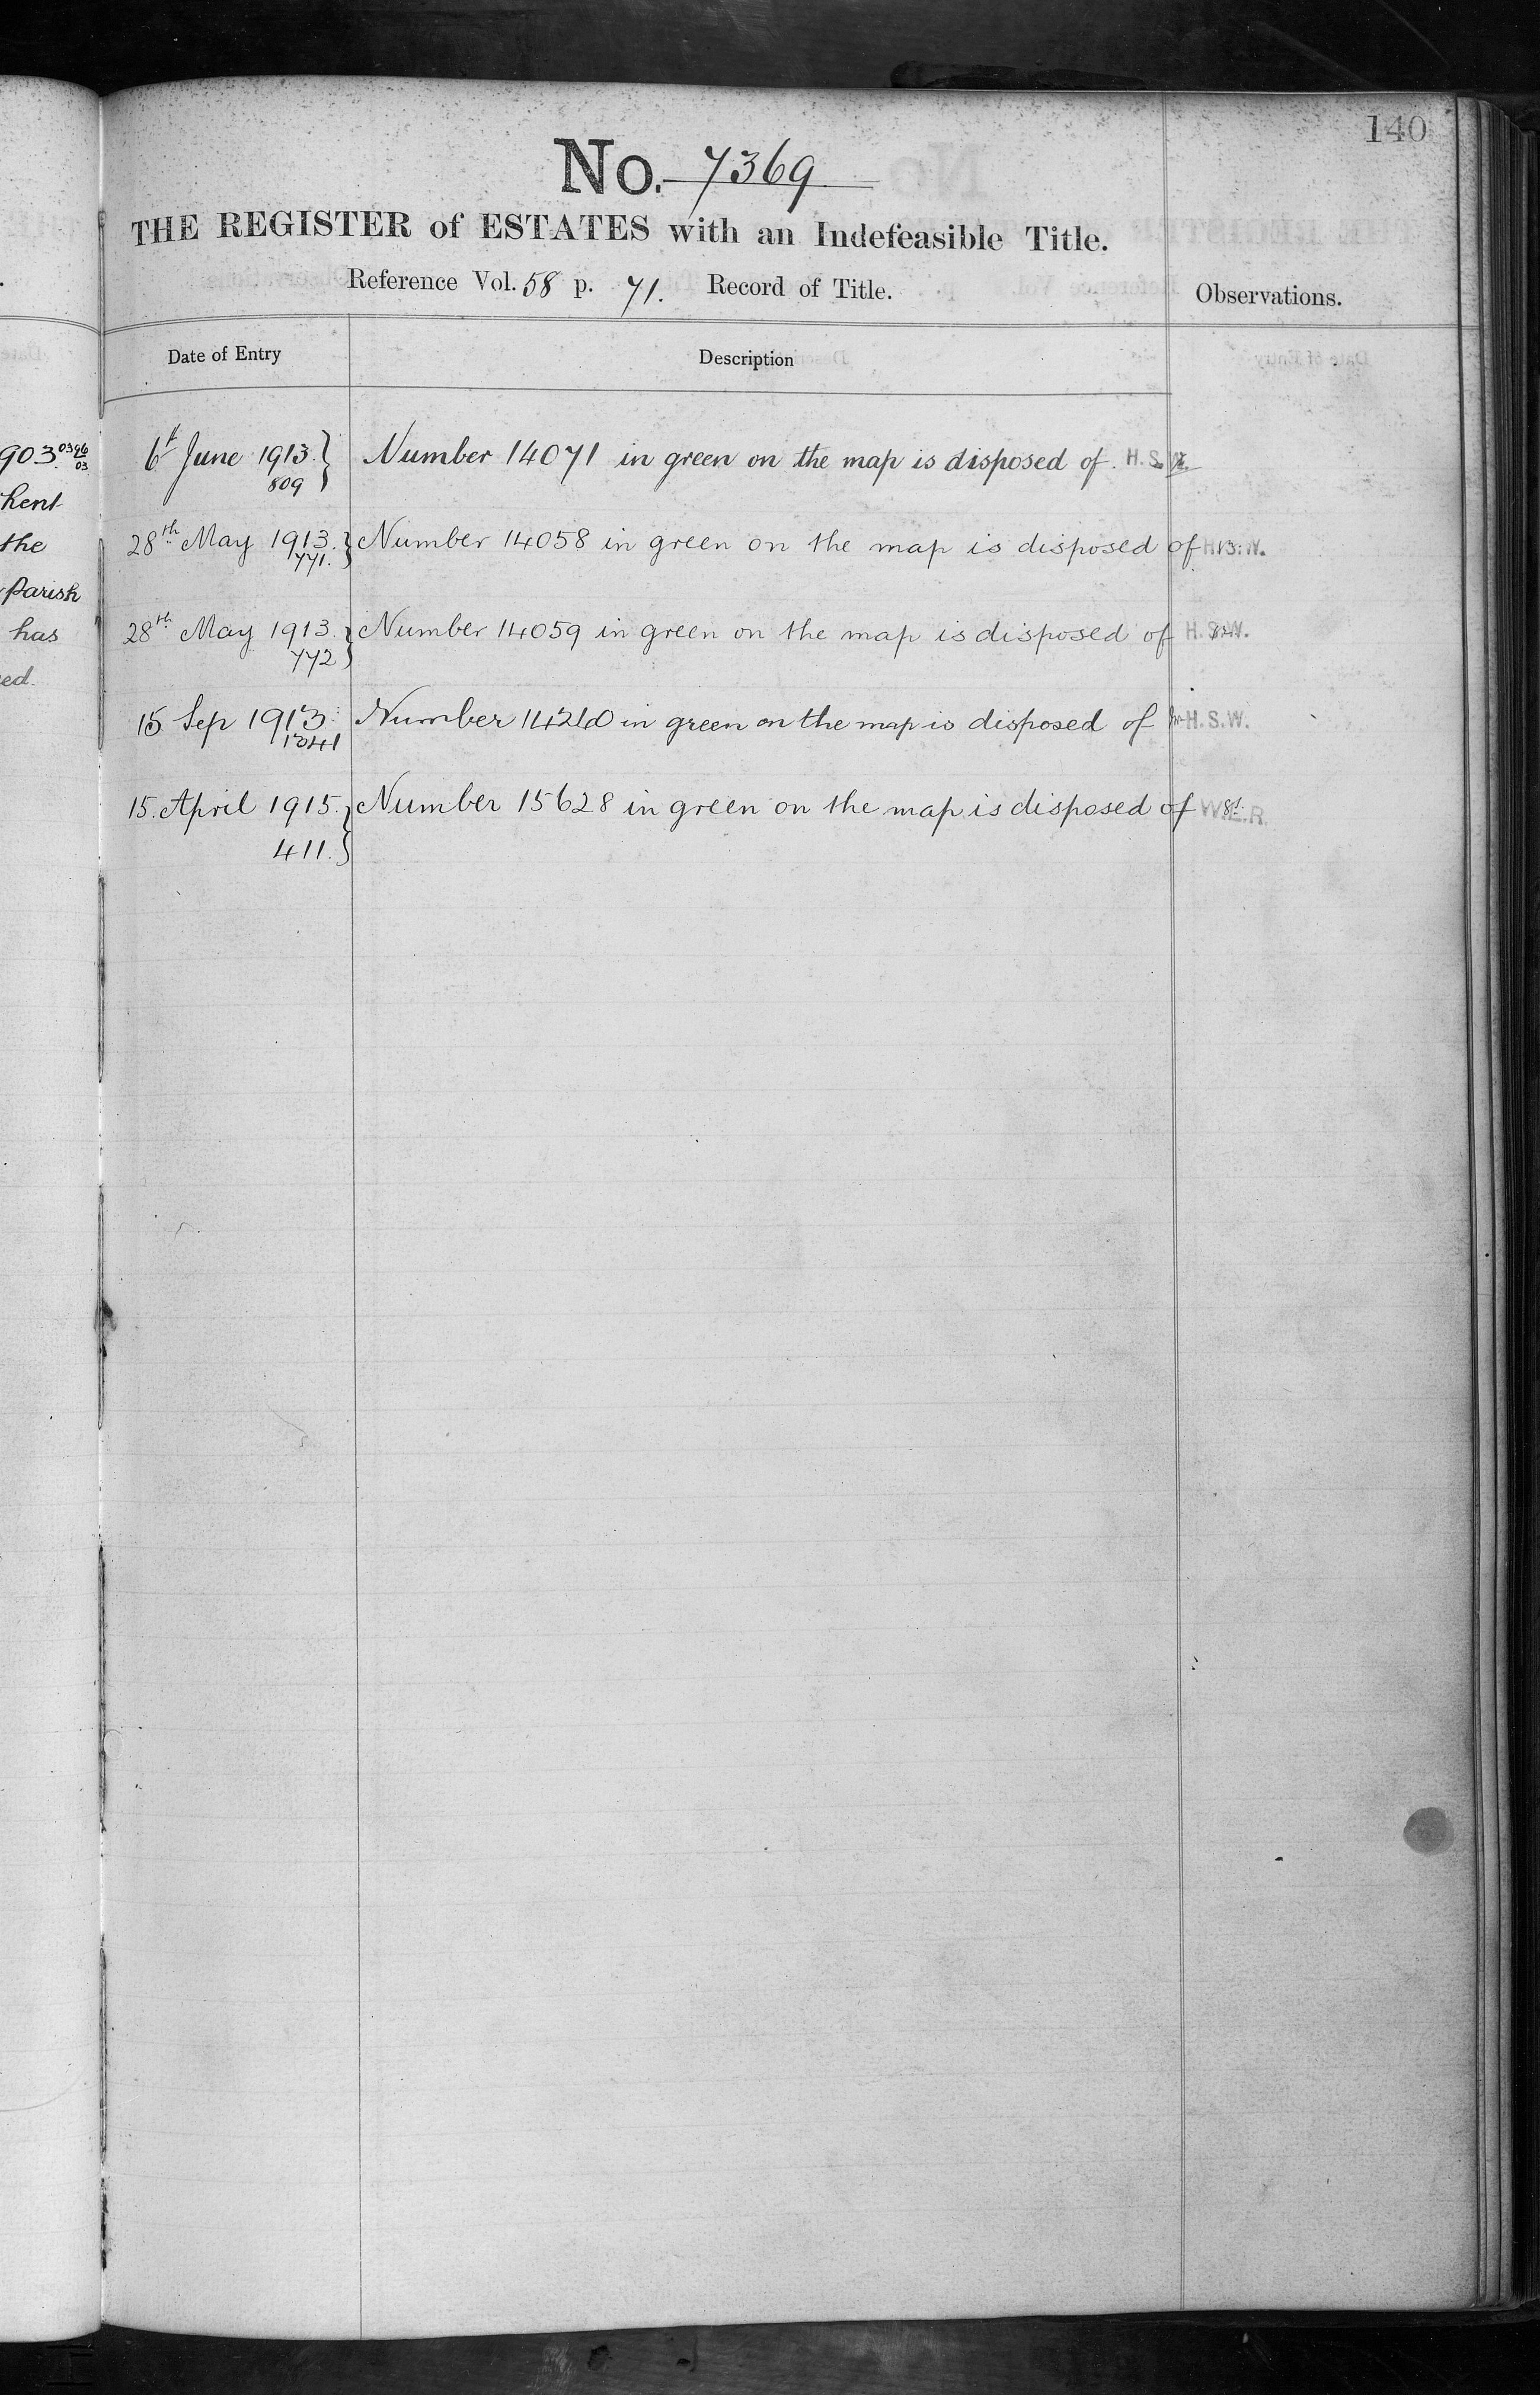 140
No. 7369
THE REGISTER of ESTATES with an Indefeasible Title.
Reference Vol. 58 p. 71. Record of Title.
Observations.
Date of Entry
Description
903
hent
the
Parish
has
ed.
6th June 1913. Number 14071 in green on the map is disposed of. H.S.W.
809
28th May 1913. Number 14058 in green on the map is disposed of H.S.W.
771.
28th May 1913. Number 14059 in green on the map is disposed of H.S.W.
772
15 Sep 1913 Number in green on the map is disposed of H.S.W.
1341
15. April 1915. Number 15628 in green on the map is disposed of W.E.R.
411.